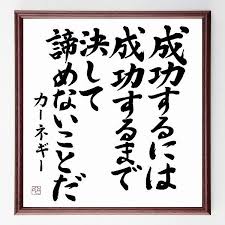 成功するには
成功するまで
決して
諦めないことだ
カーネギー